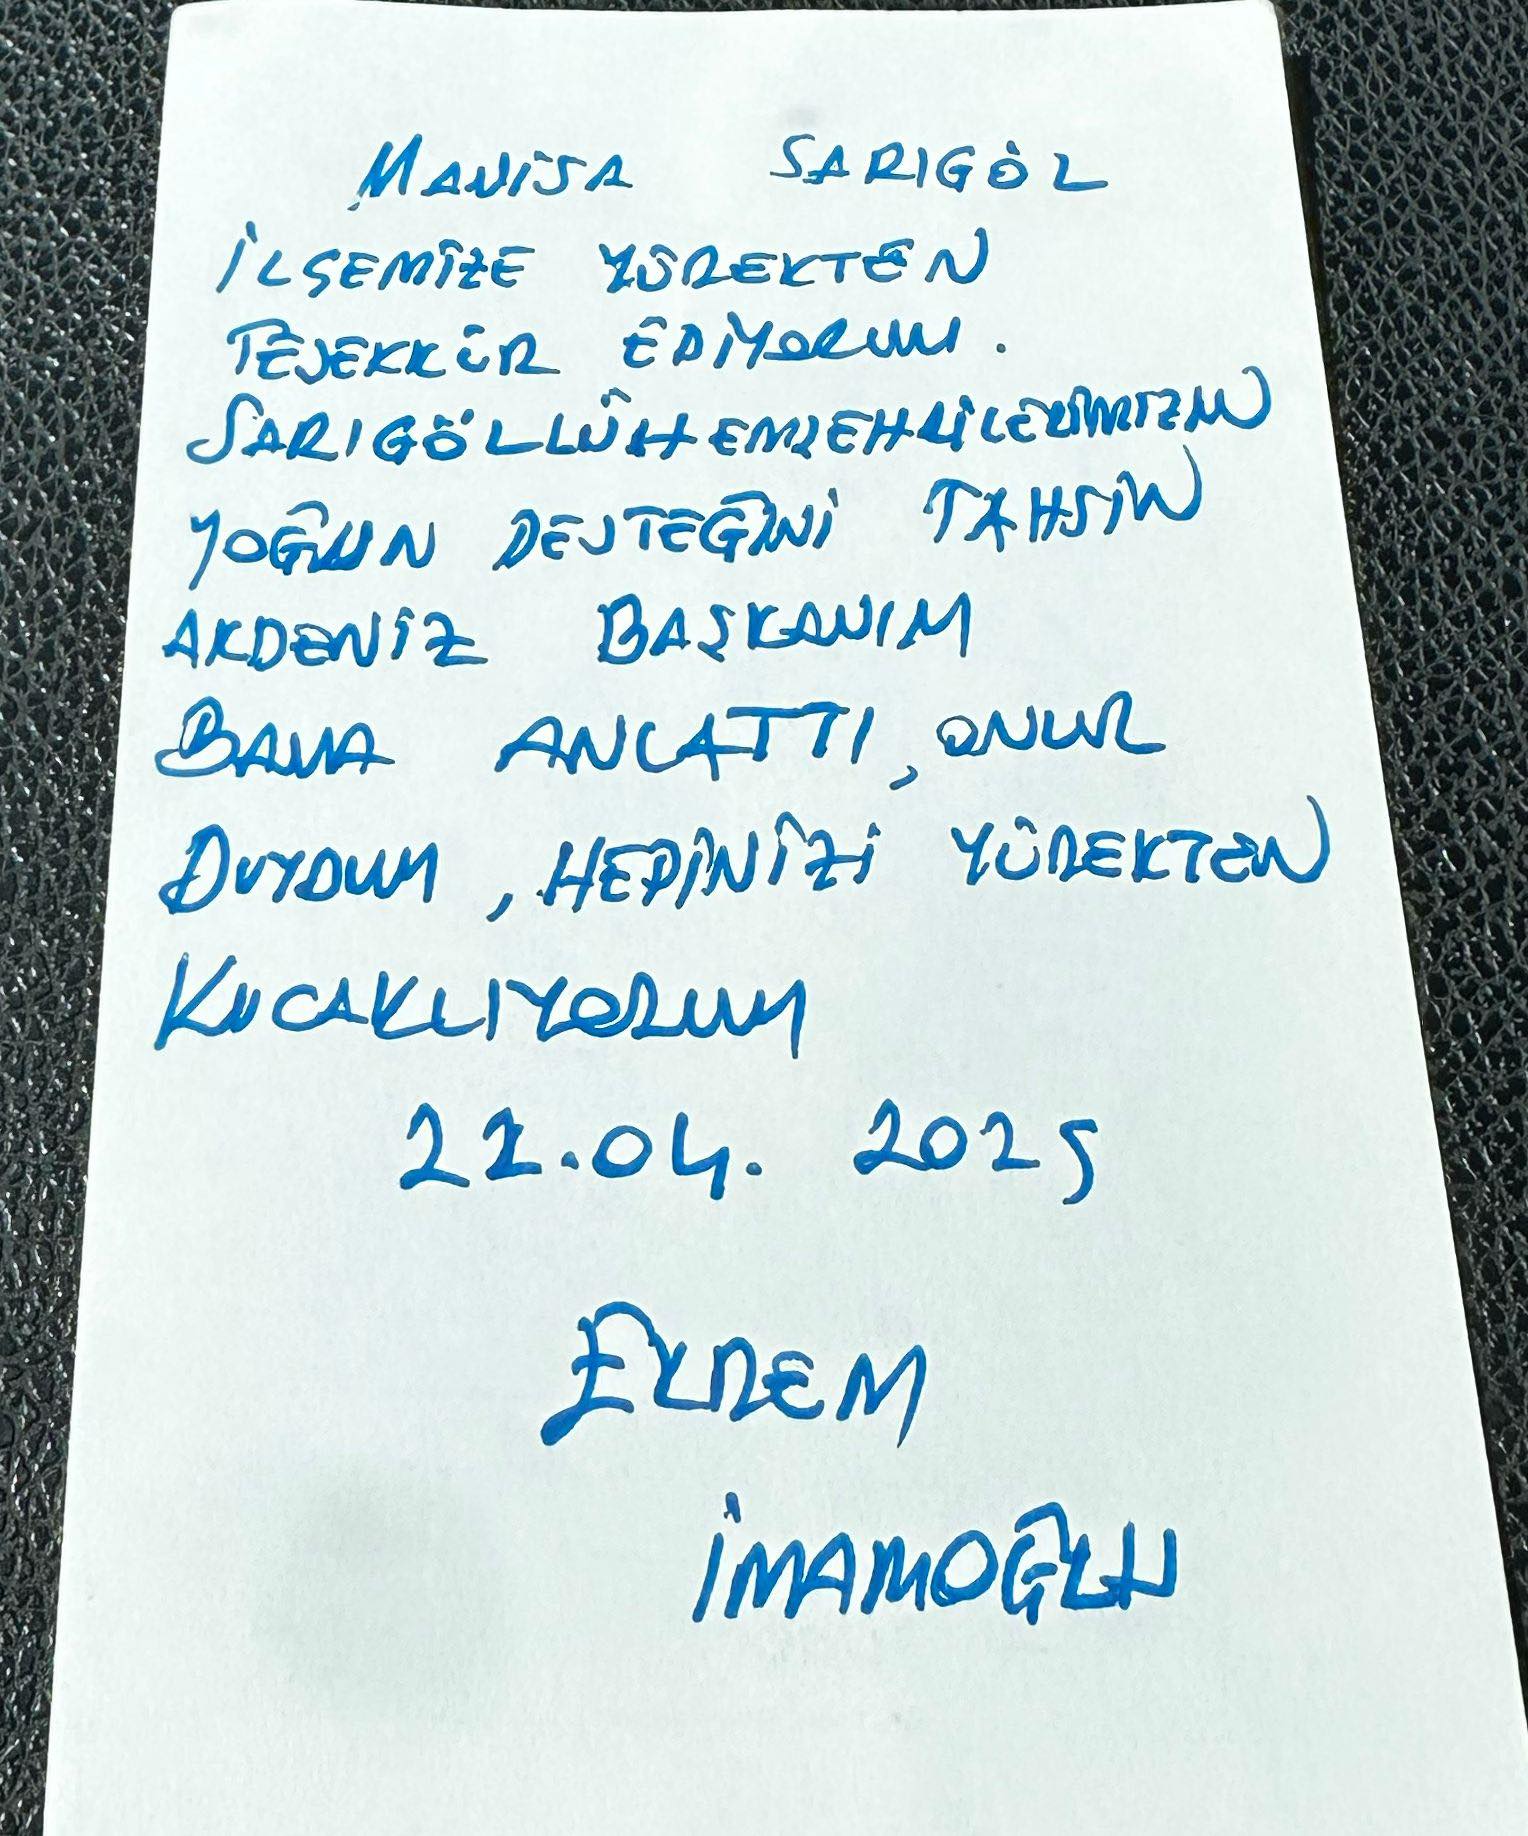 MANİSA SARIGÖL
İLÇEMİZE YÜREKTEN
TEŞEKKÜR EDİYORUM.
SARIGÖLLÜ HEMŞEHRİLERİMİZİN
YOĞUN DESTEĞİNİ TAHSİN
AKDENİZ BAŞKANIM
BANA ANLATTI, ONUR
DUYDUM, HEPİNİZİ YÜREKTEN
KUCAKLIYORUM
22.04.2025
EKREM
İMAMOĞLU